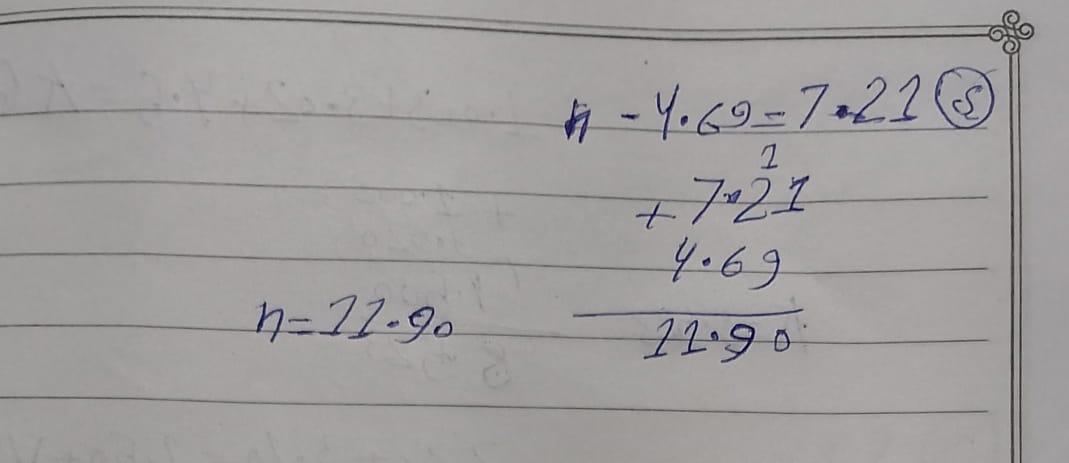 n - 4.69 = 7.21 (5)
1
+ 7.21
4.69
11.90
n = 11.90